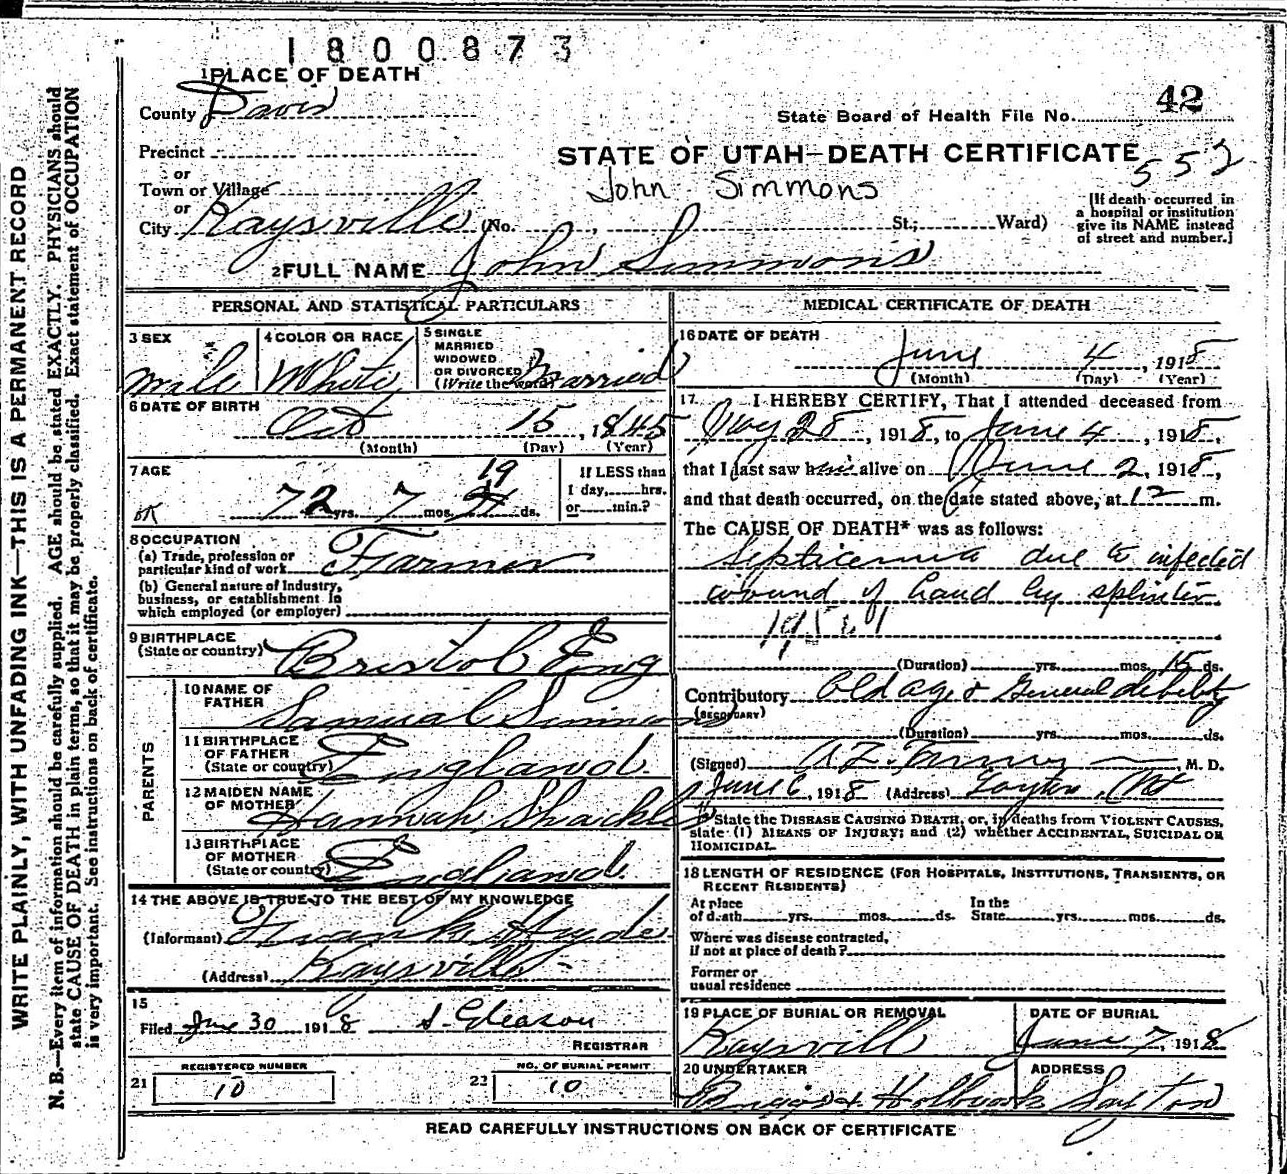 1800873
1 PLACE OF DEATH
County Davis
State Board of Health File No. 42
Precinct
or
STATE OF UTAH—DEATH CERTIFICATE
552
Town or Village
John Simmons
or
City Kaysville (No. , St.; Ward)
[If death occurred in
a hospital or institution
give its NAME instead
of street and number.]
2 FULL NAME John Simmons
PERSONAL AND STATISTICAL PARTICULARS
3 SEX
male
4 COLOR OR RACE
White
5 SINGLE
MARRIED
WIDOWED
OR DIVORCED
(Write the word) Married
6 DATE OF BIRTH
Oct 15, 1845
(Month) (Day) (Year)
7 AGE
OK 72 yrs. 7 mos. 19 ds.
If LESS than
1 day, hrs.
or min.?
8 OCCUPATION
(a) Trade, profession or
particular kind of work Farmer
(b) General nature of Industry,
business, or establishment in
which employed (or employer)
9 BIRTHPLACE
(State or country) Bristol Eng
PARENTS
10 NAME OF
FATHER
Samual Simmons
11 BIRTHPLACE
OF FATHER
(State or country) England
12 MAIDEN NAME
OF MOTHER
Hannah
13 BIRTHPLACE
OF MOTHER
(State or country) England
14 THE ABOVE IS TRUE TO THE BEST OF MY KNOWLEDGE
(Informant) Frank Hyde
(Address) Kaysville
15
Filed June 30 1918 S. Gleason
REGISTRAR
21 REGISTERED NUMBER
10
22 NO. OF BURIAL PERMIT
10
MEDICAL CERTIFICATE OF DEATH
16 DATE OF DEATH
June 4, 1918
(Month) (Day) (Year)
17 I HEREBY CERTIFY, That I attended deceased from
May 28, 1918, to June 4, 1918,
that I last saw him alive on June 2, 1918,
and that death occurred, on the date stated above, at 12 m.
The CAUSE OF DEATH* was as follows:
Septicemia due to infected
wound of hand by splinter
(Duration) yrs. mos. 15 ds.
Contributory Old age & General debility
(SECONDARY)
(Duration) yrs. mos. ds.
(Signed) , M. D.
June 6, 1918 (Address) Layton, Ut
* State the DISEASE CAUSING DEATH, or, in deaths from VIOLENT CAUSES,
state (1) MEANS OF INJURY; and (2) whether ACCIDENTAL, SUICIDAL OR
HOMICIDAL.
18 LENGTH OF RESIDENCE (FOR HOSPITALS, INSTITUTIONS, TRANSIENTS, OR
RECENT RESIDENTS)
At place
of death yrs. mos. ds.
In the
State yrs. mos. ds.
Where was disease contracted,
if not at place of death?
Former or
usual residence
19 PLACE OF BURIAL OR REMOVAL
Kaysvill
DATE OF BURIAL
June 7, 1918
20 UNDERTAKER
Briggs & Holbrook
ADDRESS
Layton
READ CAREFULLY INSTRUCTIONS ON BACK OF CERTIFICATE
WRITE PLAINLY, WITH UNFADING INK—THIS IS A PERMANENT RECORD
N. B.—Every item of information should be carefully supplied. AGE should be stated EXACTLY. PHYSICIANS should
state CAUSE OF DEATH in plain terms, so that it may be properly classified. Exact statement of OCCUPATION
is very important. See instructions on back of certificate.